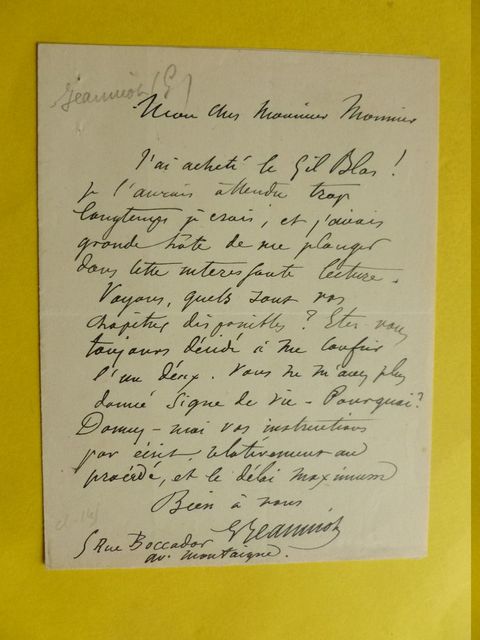 Jeanniot (P)
Mon cher Monsieur Monnier
J'ai acheté le Gil Blas !
je l'aurais attendu trop
longtemps je crois, et j'avais
grande hâte de me plonger
dans cette intéressante lecture.
Voyons, quels sont vos
chapitres disponibles ? Etes vous
toujours décidé à me confier
l'un d'eux. Vous ne m'avez plus
donné signe de vie - Pourquoi ?
Donnez-moi vos instructions
par écrit, relativement au
procédé, et le délai maximum
Bien à vous
GJeanniot
5 Rue Boccador
av. Montaigne.